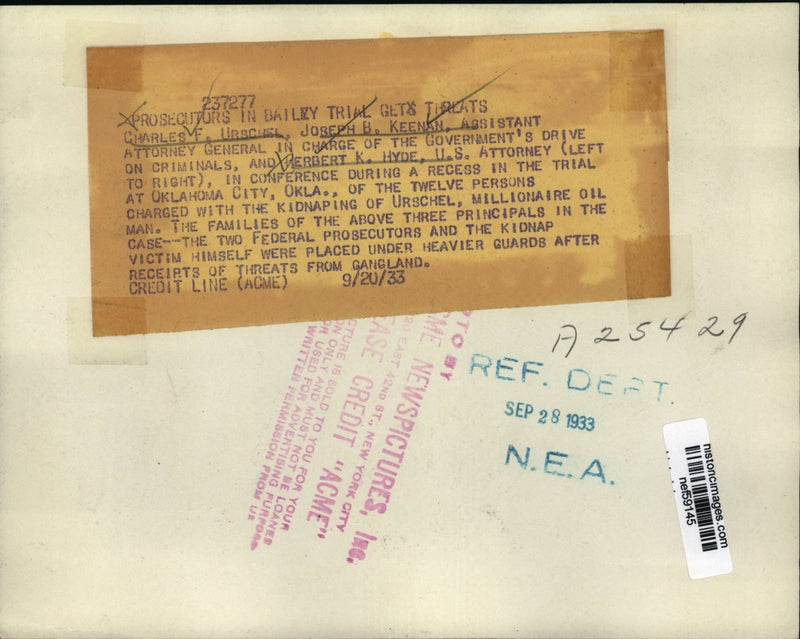 237277
PROSECUTORS IN BAILEY TRIAL GETS THREATS
CHARLES F. URSCHEL, JOSEPH B. KEENAN, ASSISTANT
ATTORNEY GENERAL IN CHARGE OF THE GOVERNMENT'S DRIVE
ON CRIMINALS, AND HERBERT K. HYDE, U.S. ATTORNEY (LEFT
TO RIGHT), IN CONFERENCE DURING A RECESS IN THE TRIAL
AT OKLAHOMA CITY, OKLA., OF THE TWELVE PERSONS
CHARGED WITH THE KIDNAPING OF URSCHEL, MILLIONAIRE OIL
MAN. THE FAMILIES OF THE ABOVE THREE PRINCIPALS IN THE
CASE--THE TWO FEDERAL PROSECUTORS AND THE KIDNAP
VICTIM HIMSELF WERE PLACED UNDER HEAVIER GUARDS AFTER
RECEIPTS OF THREATS FROM GANGLAND.
CREDIT LINE (ACME) 9/20/33
A 25429
REF. DEPT.
SEP 28 1933
N.E.A.
BY
NEWSPICTURES, INC.
EAST 42ND ST., NEW YORK CITY
CREDIT "ACME"
PICTURE IS SOLD TO YOU FOR YOUR
ONLY AND MUST NOT BE LOANED
OR USED FOR ADVERTISING PURPOSES
WRITTEN PERMISSION FROM US
historicimages.com
nef59145